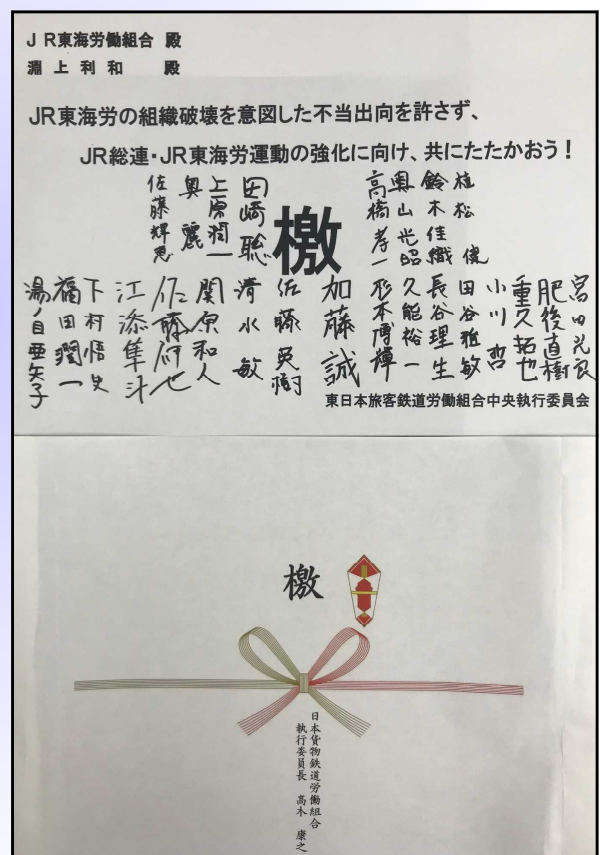 JR東海労働組合 殿
淵上利和 殿
JR東海労の組織破壊を意図した不当出向を許さず、
JR総連・JR東海労運動の強化に向け、共にたたかおう!
檄
植松
鈴木佳織
奥山光昭
高橋孝一
田崎聡
上原潤一
奥麗
佐藤輝恵
宮田光良
肥後直樹
重久拓也
小川哲
田谷雅敏
長谷理生
久能裕一
杉本博
加藤誠
佐藤英樹
清水敏
関原和人
江添隼斗
下村悟史
福田潤一
湯ノ目亜矢子
東日本旅客鉄道労働組合中央執行委員会
檄
日本貨物鉄道労働組合
執行委員長 高木 康之